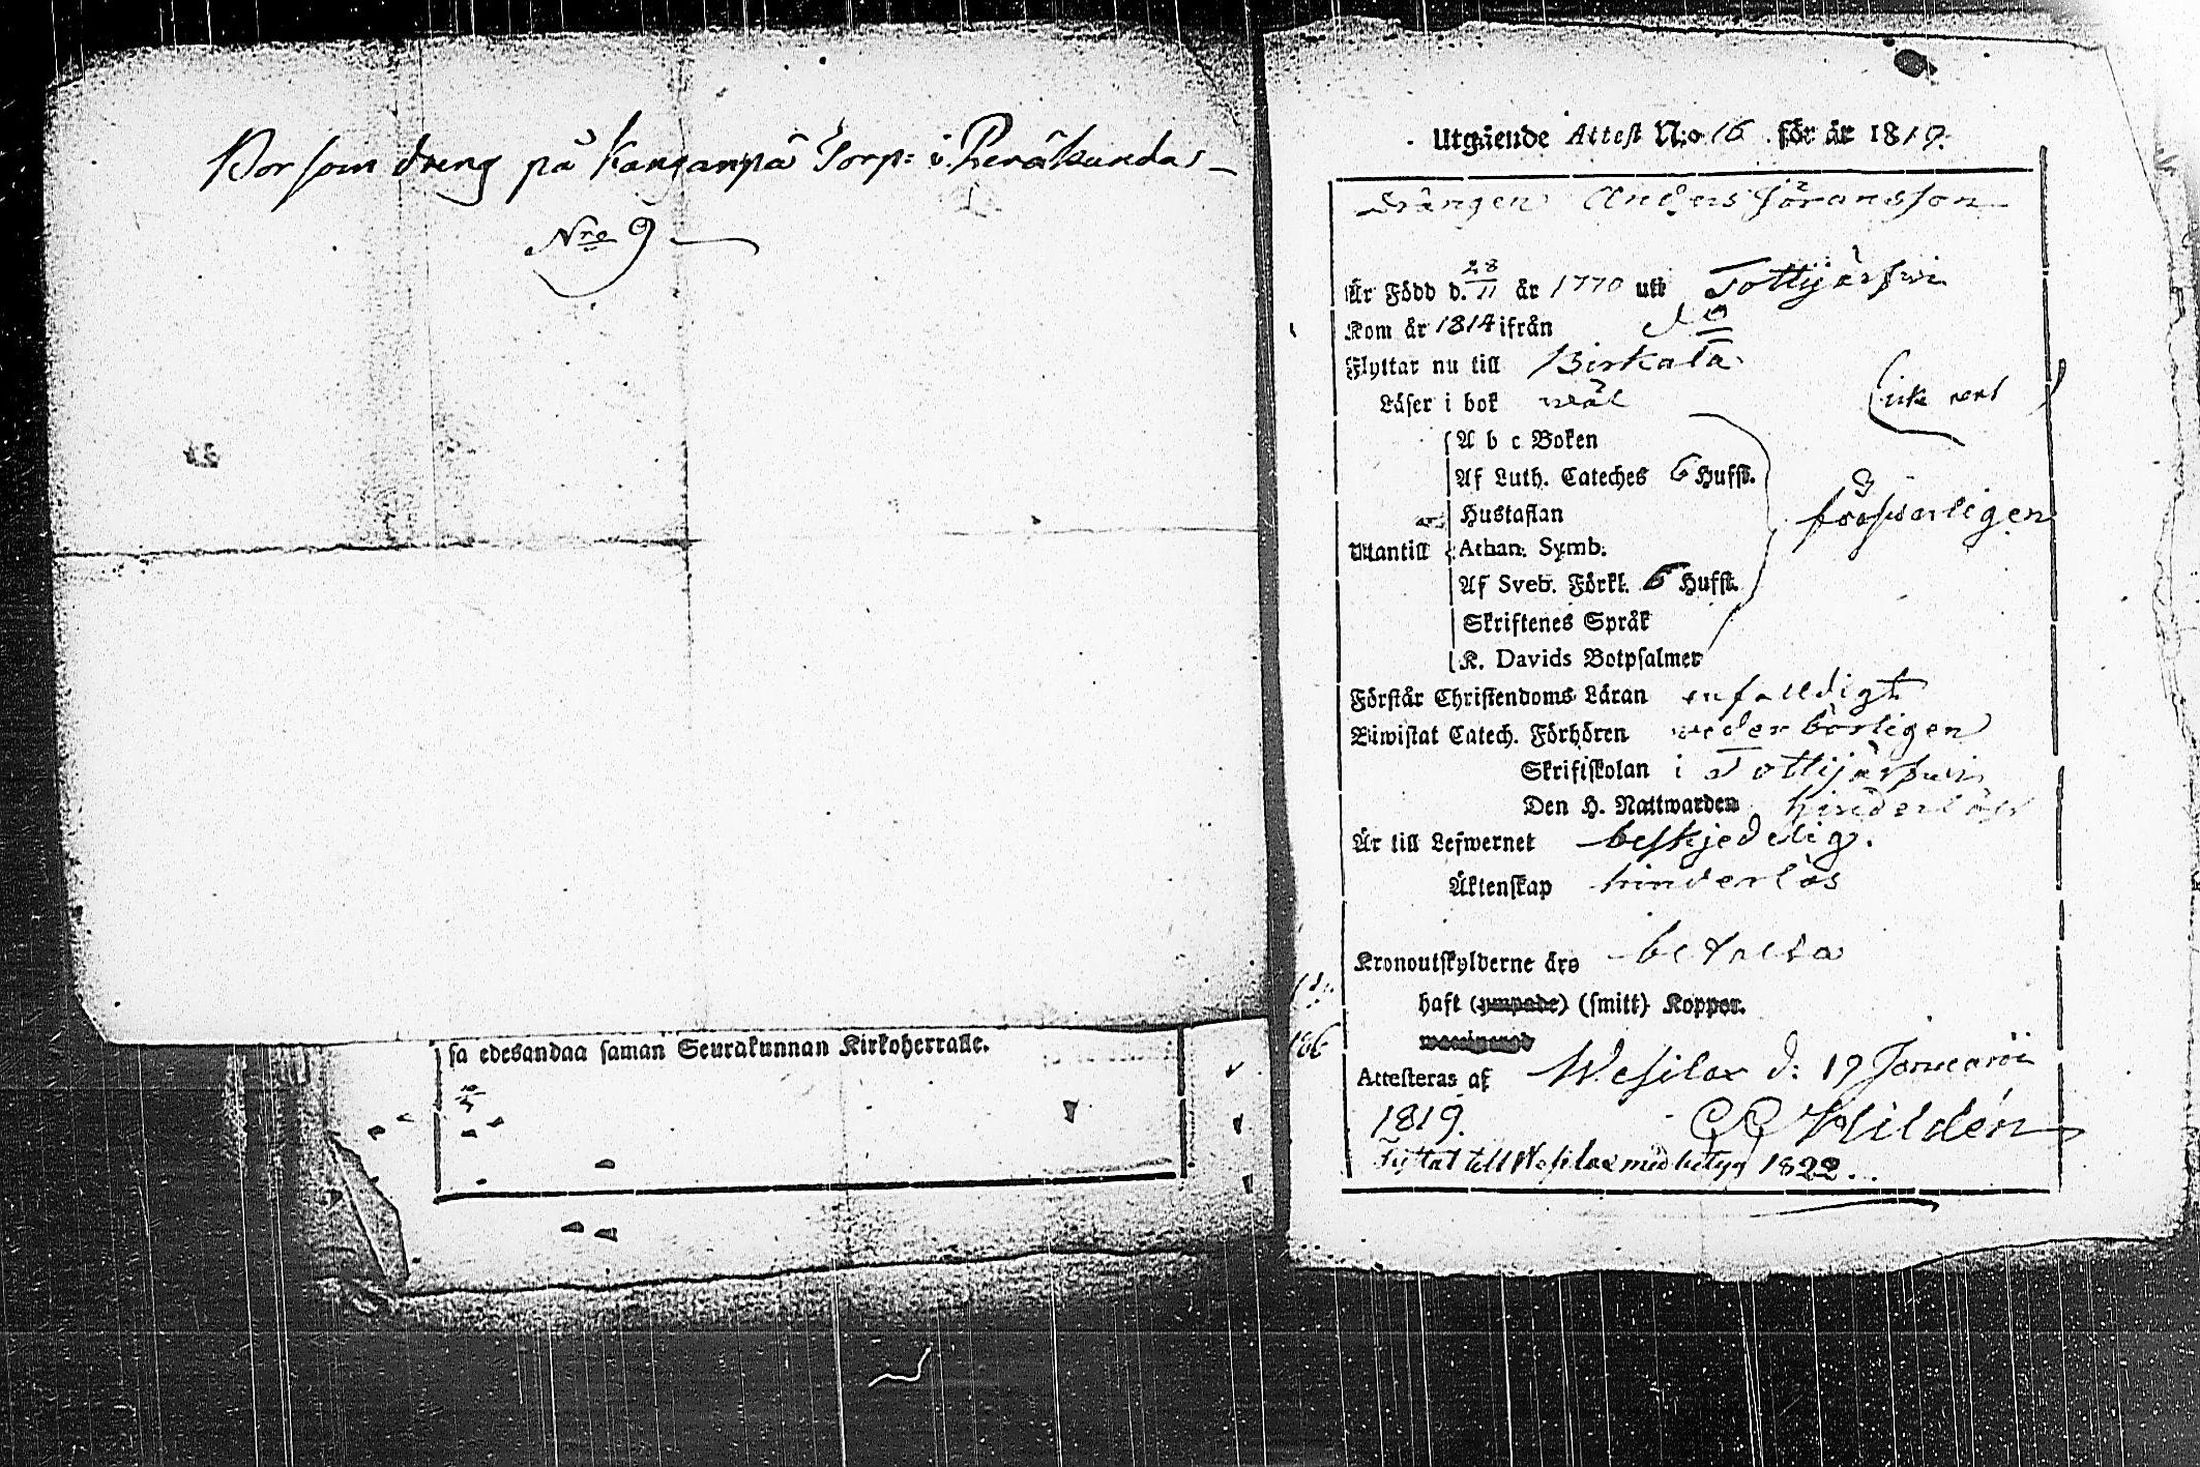 Bor som dreng på Kanganpä Torp: i Peräkunda
Nro 9
sa edesandaa saman Seurakunnan Kirkoherralle.
Utgående Attest N:o 16 för år 1819.
Drängen Anders Göransson
Är Född d. 28/11 år 1770 uti Tottijärfwi
Kom år 1814 ifrån do
Flyttar nu till Birkala
Läser i bok wäl
(icke rent)
A b c Boken
Af Luth. Cateches 6 Hufst.
Hustaflan
försvarligen
Utantill Athan. Symb.
Af Sveb. Förkl. 6 Hufst.
Skriftenes Språk
K. Davids Botpsalmer
Förstår Christendoms Läran enfalldigt
Biwistat Catech. Förhören wederbörligen
Skriftskolan i Tottijärfwi
Den H. Nattwarden hinderlös
Är till Lefwernet beskjedelig.
Äktenskap hinderlös
Kronoutskylderne äro betalta
haft (ympade) (smitt) Koppor.
Attesteras af Wesilax d: 19 Januarii
1819. Hildén
Flyttat till Wesilax med betyg 1822.